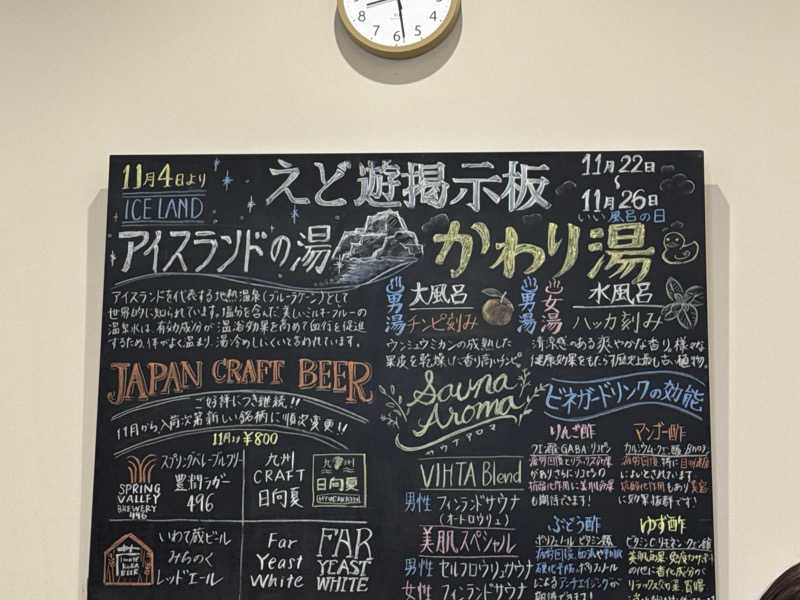 6
5
4
7
11月4日より
ICELAND
えど遊掲示板
11月22日
～
11月26日
いい風呂の日
アイスランドの湯
アイスランドを代表する地熱温泉(ブルーラグーン)として
世界的に知られています。塩分を含んだ美しいミルキーブルーの
温泉水は、有効成分が温浴効果を高めて血行を促進
するため、体がよく温まり、湯冷めしにくいといわれています。
かわり湯
男湯
大風呂
チンピ刻み
ウンシュウミカンの成熟した
果皮を乾燥した香り高いチンピ
男湯
女湯
水風呂
ハッカ刻み
清涼感のある爽やかな香り、様々な
健康効果をもたらす歴史上最も古い植物。
JAPAN CRAFT BEER
ご好評につき継続!!
11月から入荷次第新しい銘柄に順次変更!!
¥800
SPRING
VALLEY
BREWERY
496
スプリングバレーブルワリー
豊潤ラガー
496
九州
CRAFT
日向夏
九州
日向夏
いわて蔵ビール
みちのく
レッドエール
Far
Yeast
White
FAR
YEAST
WHITE
Sauna
Aroma
サウナアロマ
VIHTA Blend
男性 フィンランドサウナ
(オートロウリュ)
美肌スペシャル
男性 セルフロウリュウサウナ
女性 フィンランドサウナ
ビネガードリンクの効能
りんご酢
クエン酸 GABA
疲労回復とリラックス効果
がありさらにリンゴの
抗酸化作用に美肌効果
も期待できます!
マンゴー酢
疲労回復
に効果抜群です!
ぶどう酢
ポリフェノール ビタミン類
によるアンチエイジングが
期待できます!
ゆず酢